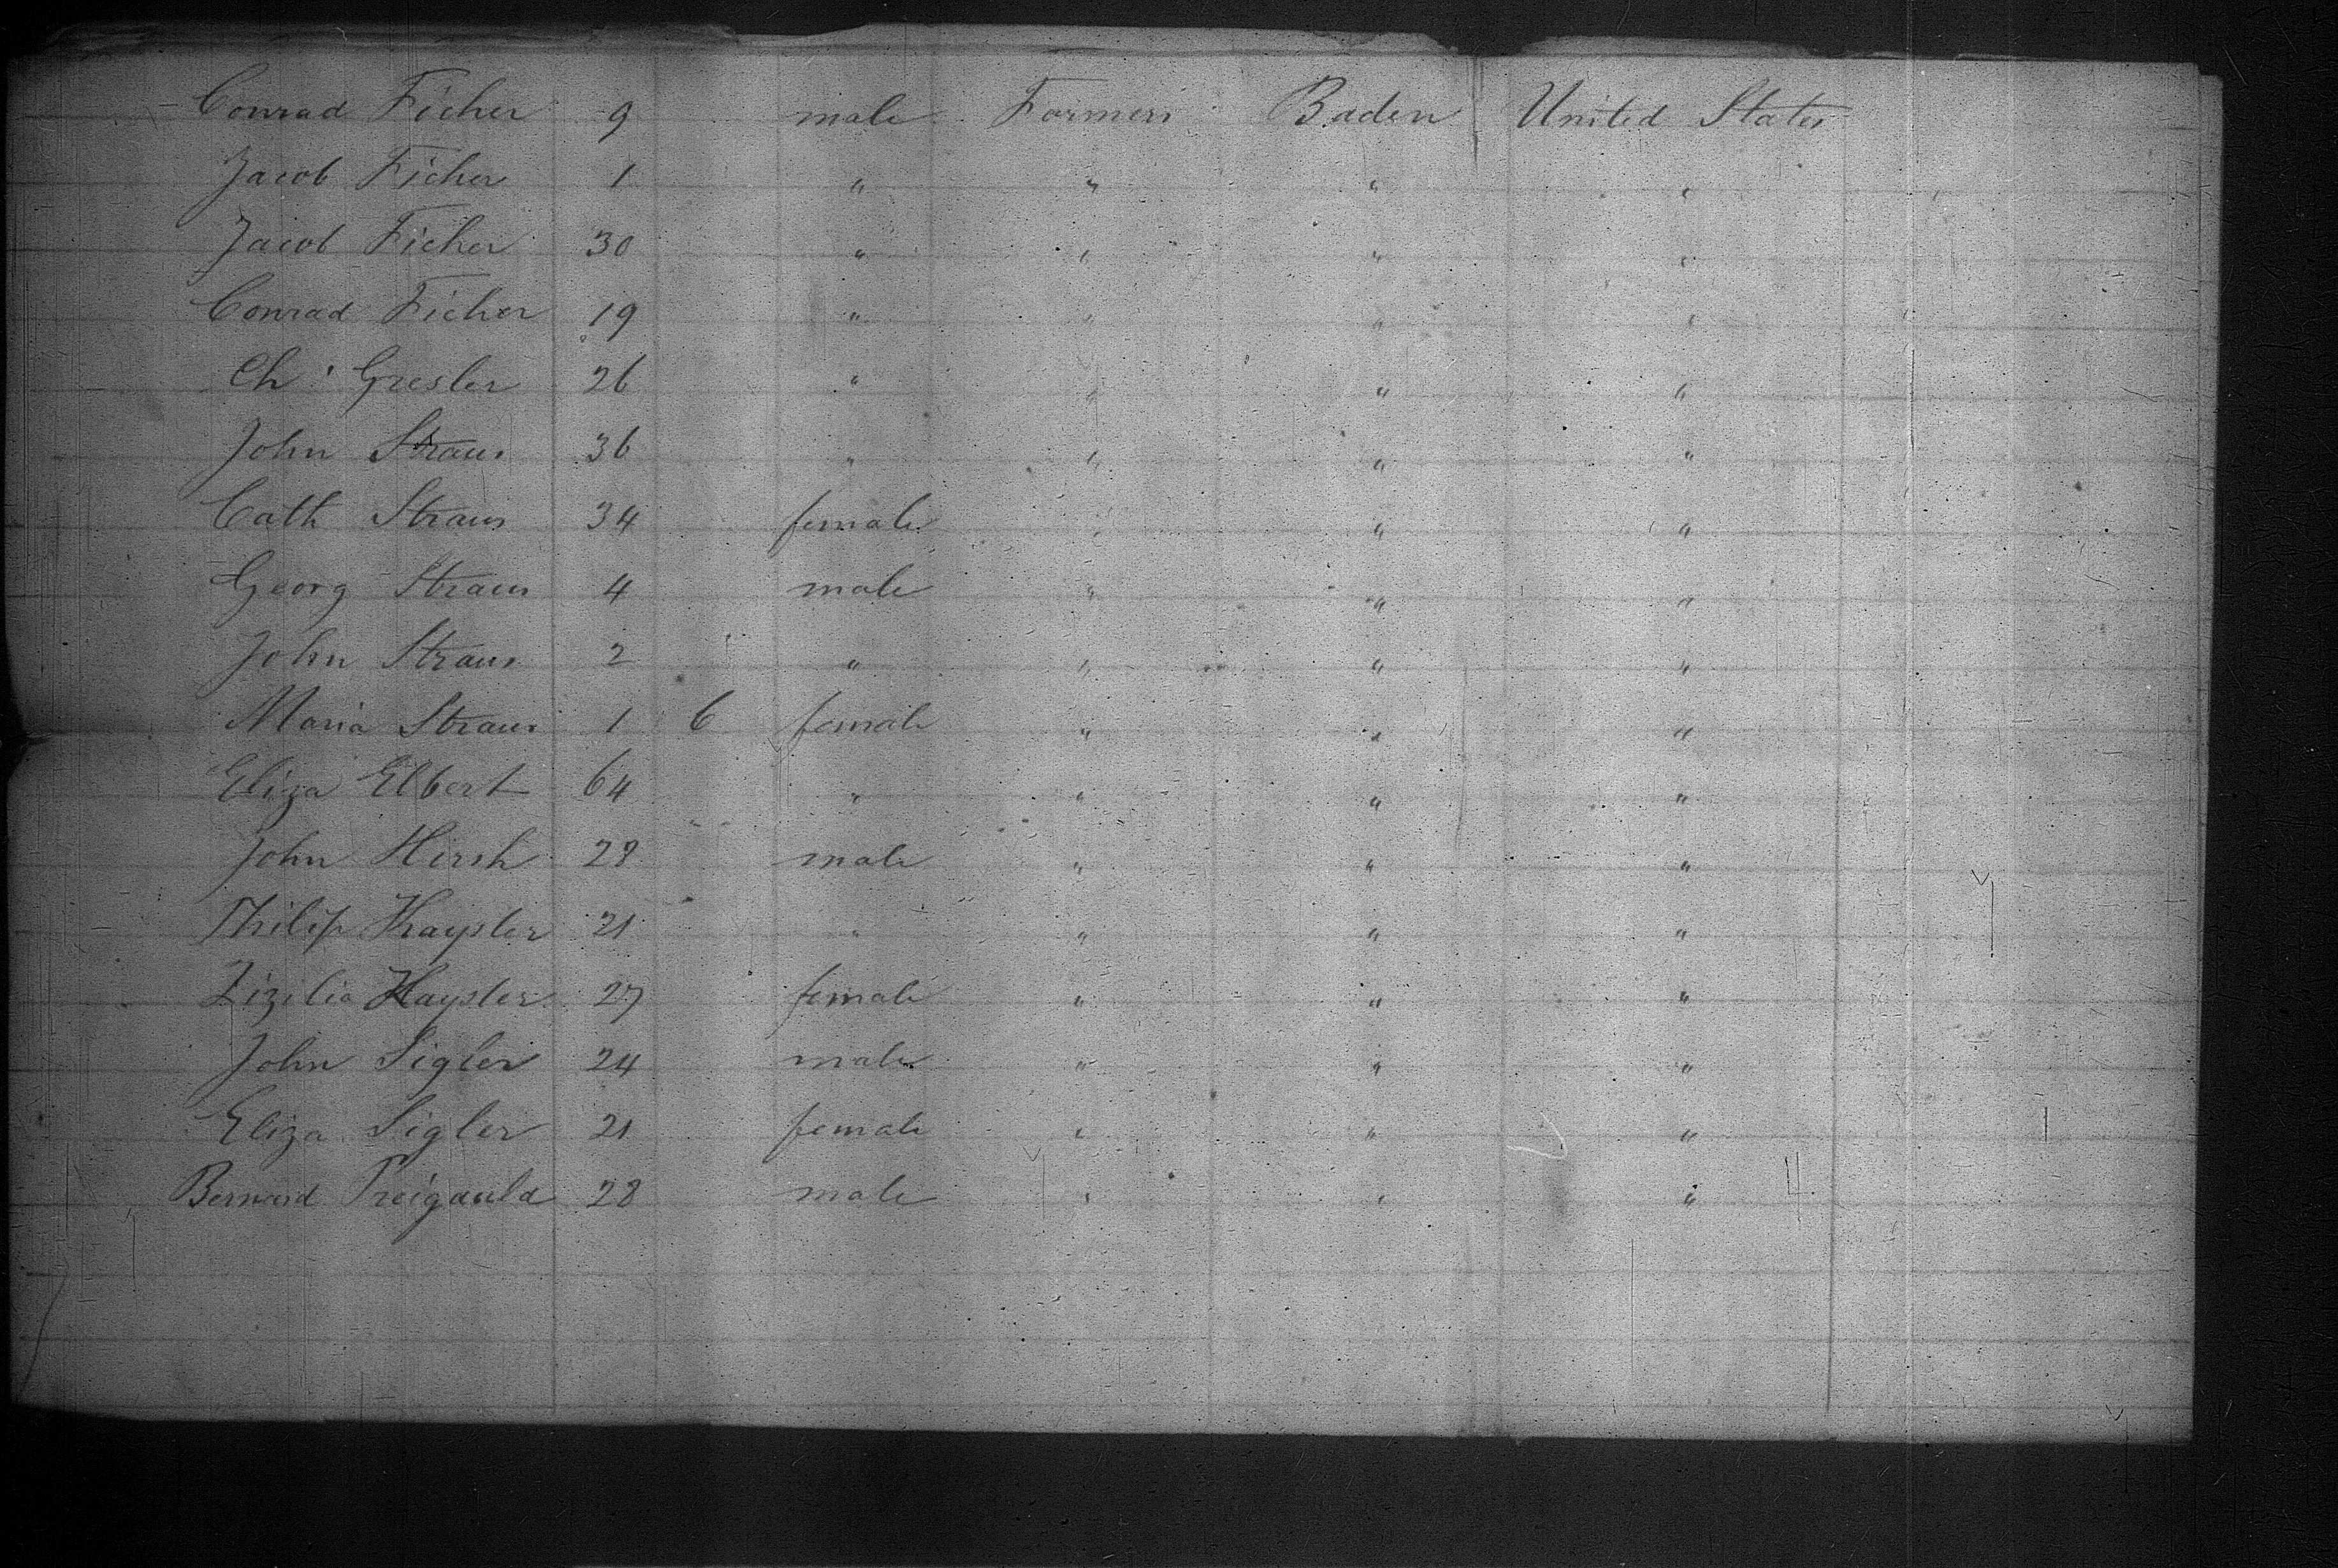 Conrad Ficher 9 male Farmers Baden United States
Jacob Ficher 1 " " " "
Jacob Ficher 30 " " " "
Conrad Ficher 19 " " " "
Ch: Gresler 26 " " " "
John Straus 36 " " " "
Cath Straus 34 female " " "
Georg Straus 4 male " " "
John Straus 2 " " " "
Maria Straus 1 6 female " " "
Eliza Elbert 64 " " " "
John Hirsh 28 male " " "
Philip Kaysler 21 " " " "
Zizilia Kaysler 27 female " " "
John Sigler 24 male " " "
Eliza Sigler 21 female " " "
Bernard Treigauld 28 male " " "